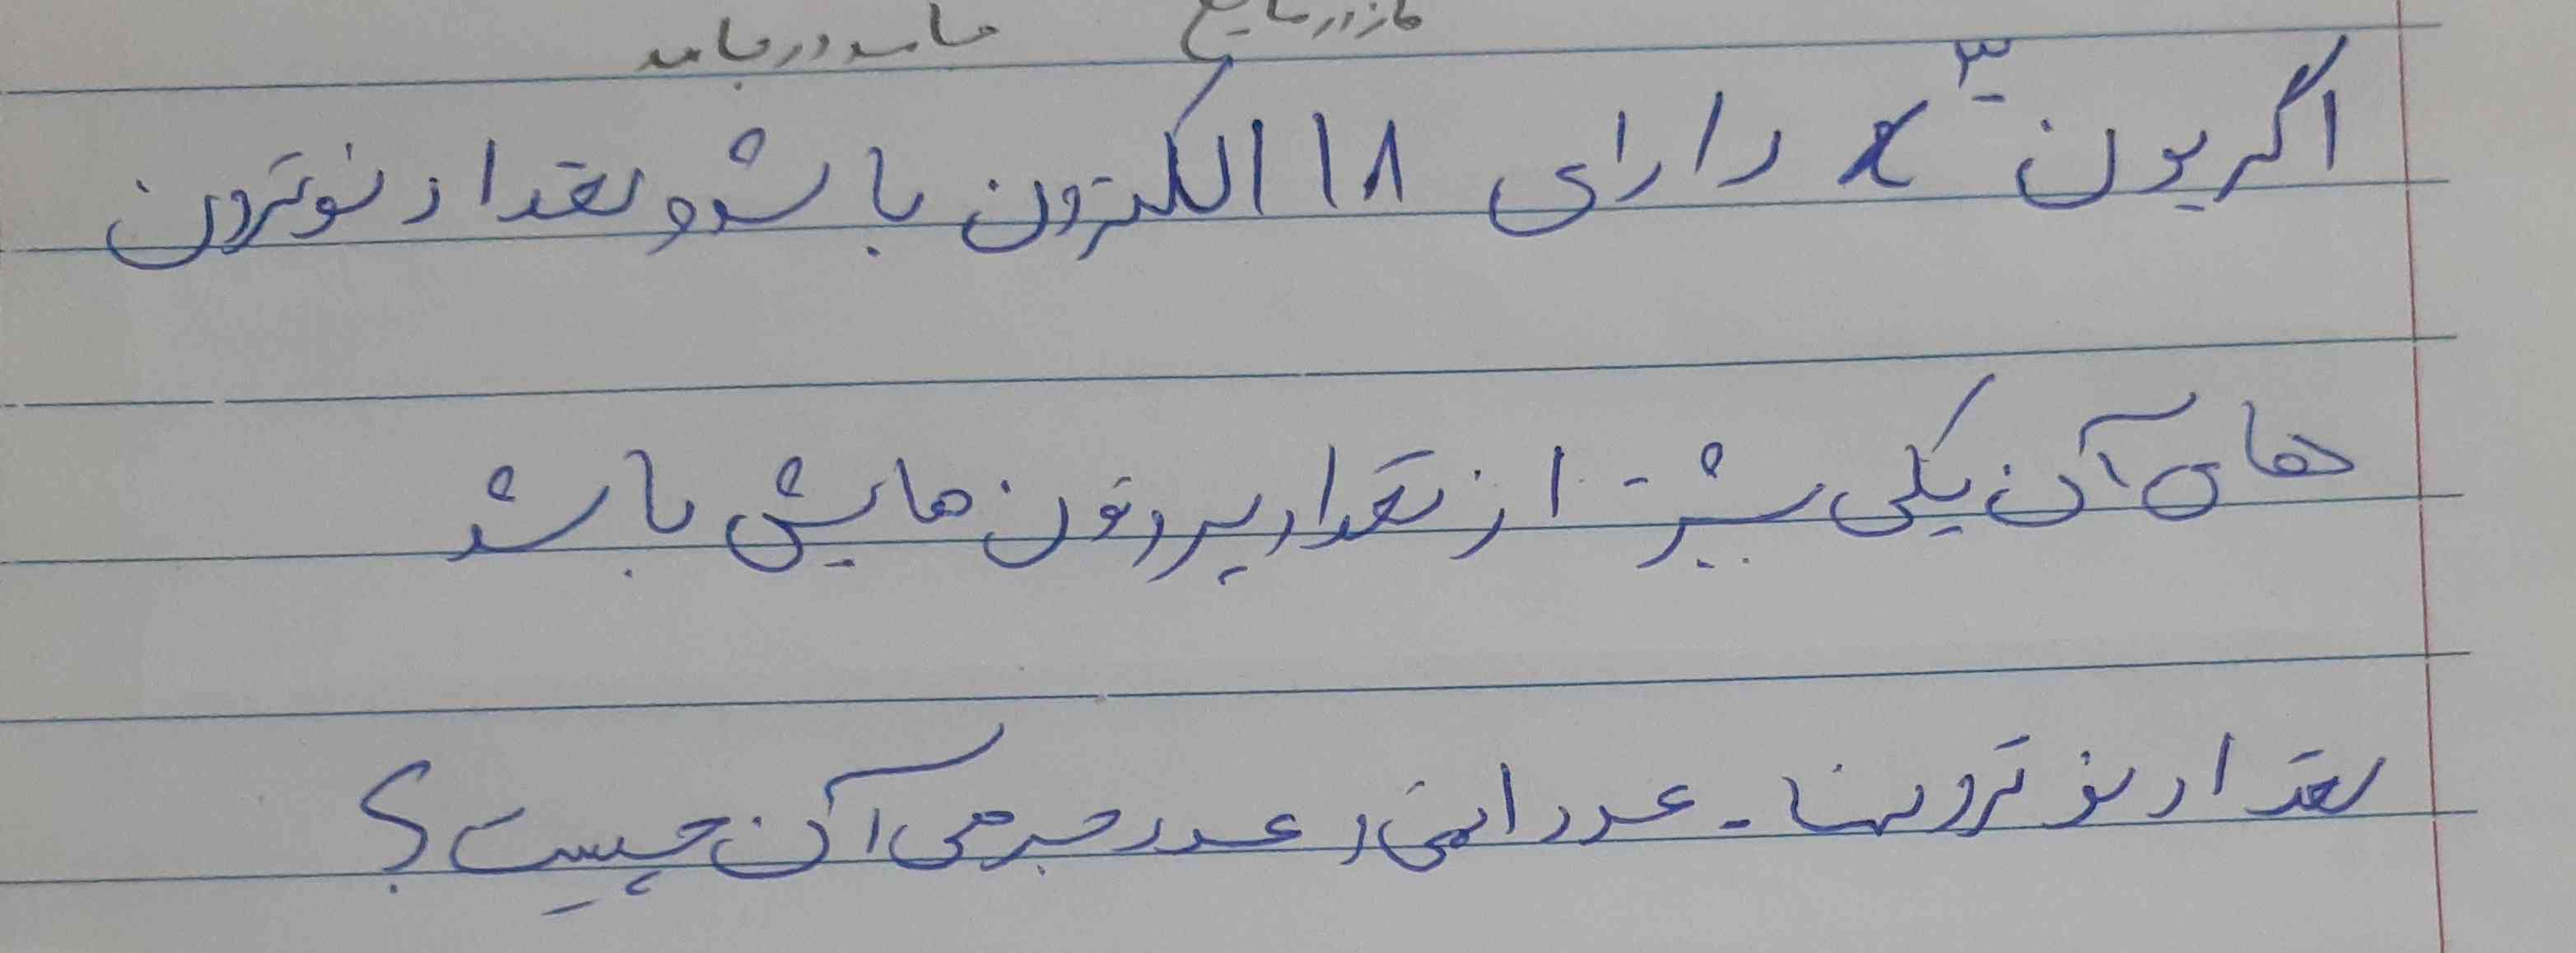 جامد در جامد
اگر یون x³⁻ دارای ۱۸ الکترون باشد و تعداد نوترون
های آن یکی بیشتر از تعداد پروتون هایش باشد
تعداد نوترونها - عدد اتمی و عدد جرمی آن چیست؟